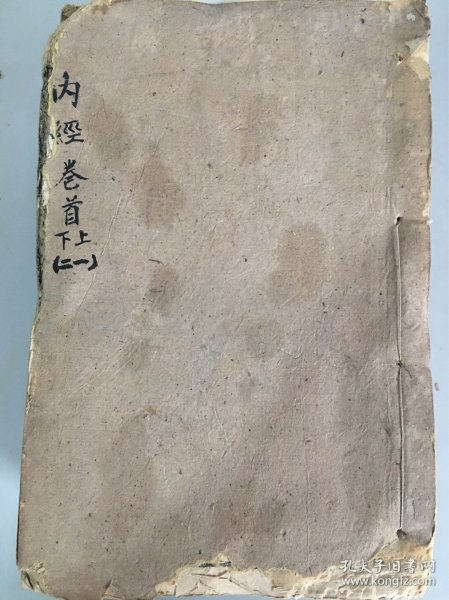 内經 卷首
上下
(一二)
孔夫子旧书网
www.kongfz.com